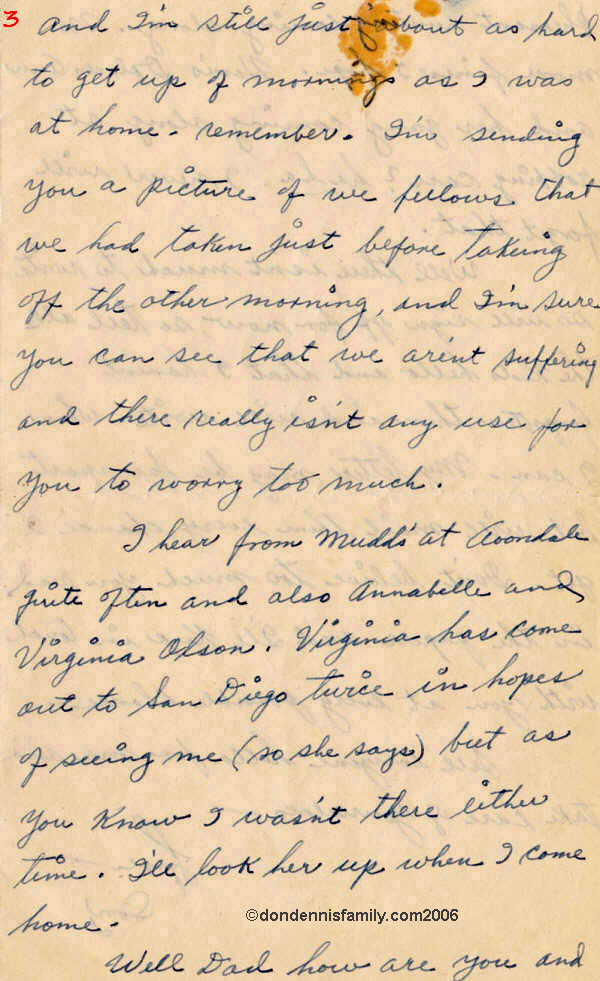 3
And I'm still just about as hard
to get up of mornings as I was
at home - remember. I'm sending
you a picture of we fellows that
we had taken just before takeing
off the other morning, and I'm sure
you can see that we are'nt suffering
and there really is'nt any use for
you to worry too much.
I hear from Mudds' at Avondale
quite often and also Annabelle and
Virginia Olson. Virginia has come
out to San Diego twice in hopes
of seeing me (so she says) but as
you know I was'nt there either
time. I'll look her up when I come
home.
©dondennisfamily.com2006
Well Dad how are you and